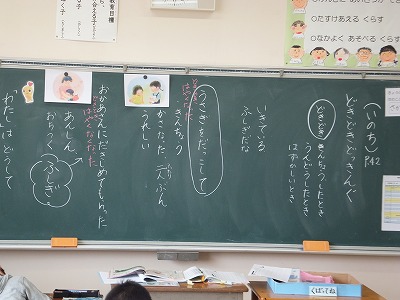 教育目標
○たすけあえる くらす
○なかよく あそべる くらす
(いのち) P42
どきどきどっきんぐ
どきどき きんちょうしたとき
うんどうしたとき
はずかしいとき
いきてる
ふしぎだな
うさぎをだっこして
きんちょう
かさなった、二人ぶん
うれしい
おかあさんにだきしめてもらった
あんしん
おちつく
ふしぎ
わたしはどうして
くばってね